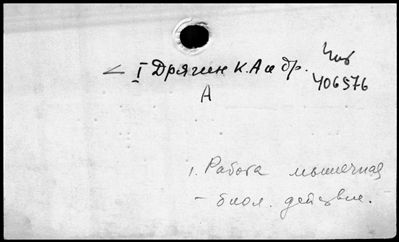 < I Дрягин К.А и др.
406576
А
1. Работа мышечная
– биол. действие.